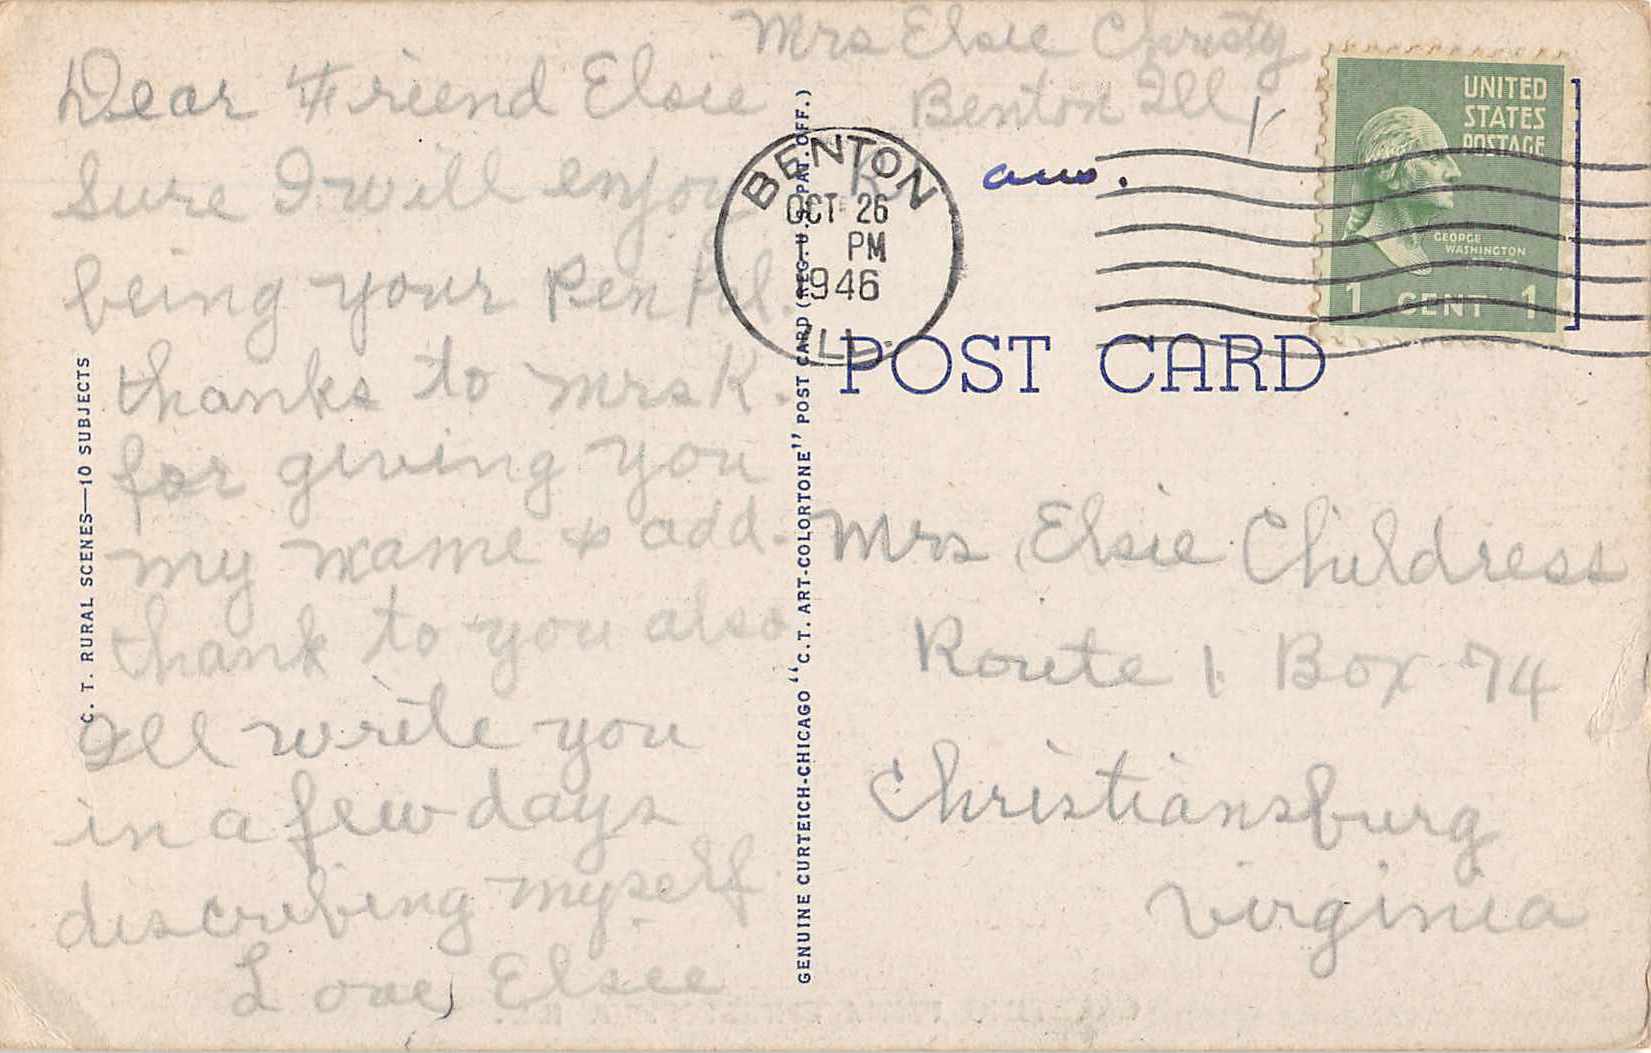 Mrs Elsie Christy
Benton Ill
Dear Friend Elsie
Sure I will enjoy
being your Pen Pal.
thanks to Mrs K.
for giving you
my name & add.
thank to you also
Ill write you
in a few days
describing myself
Love, Elsie
C. T. RURAL SCENES—10 SUBJECTS
GENUINE CURTEICH-CHICAGO "C.T. ART-COLORTONE" POST CARD (REG. U.S. PAT. OFF.)
BENTON
OCT 26
PM
1946
ILL.
ans.
UNITED
STATES
POSTAGE
GEORGE
WASHINGTON
1 CENT 1
POST CARD
Mrs Elsie Childress
Route 1 Box 74
Christiansburg
Virginia